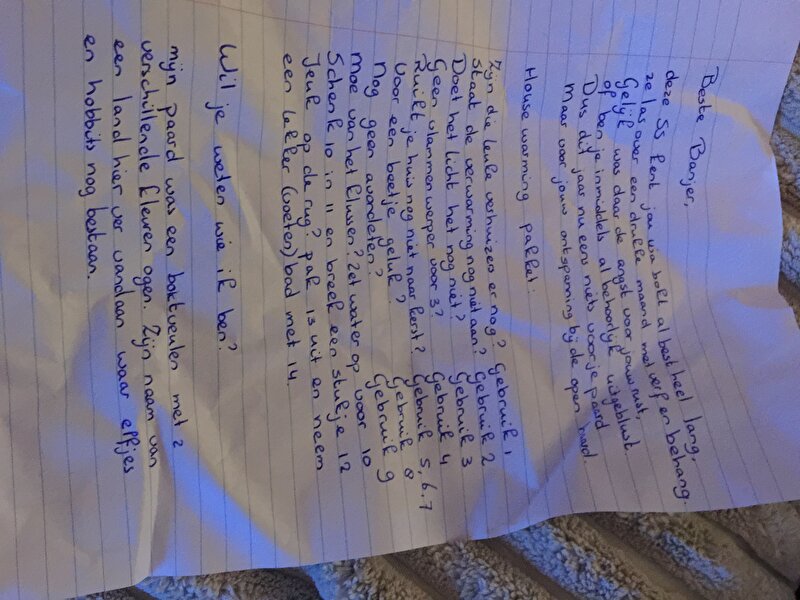 Beste Banjer,
deze SS kent jou via bokt al best heel lang,
ze las over een drukke maand met verf en behang.
Gelijk was daar de angst voor jouw rust,
of ben je inmiddels al behoorlijk uitgeblust
Dus dit jaar nu eens niets voor je paard
Maar voor jouw ontspanning bij de open haard.
House warming pakket:
Zijn die leuke verhuizers er nog? Gebruik 1
Staat de verwarming nog niet aan? Gebruik 2
Doet het licht het nog niet? Gebruik 3
Geen vlammenwerper voor 3? Gebruik 4
Ruikt je huis nog niet naar kerst? Gebruik 5, 6, 7
Voor een beetje geluk? Gebruik 8
Nog geen avondeten? Gebruik 9
Moe van het klussen? Zet water op voor 10
Schenk 10 in 11 en breek een stukje 12
Jeuk op de rug? pak 13 uit en neem
een lekker (voeten)bad met 14.
Wil je weten wie ik ben?
mijn paard was een boktveulen met 2
verschillende kleuren ogen. Zijn naam van
een land hier ver vandaan waar elfjes
en hobbits nog bestaan.